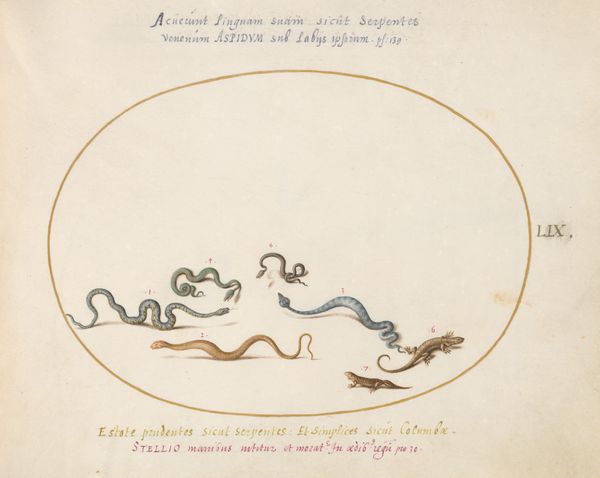 Acuerunt linguam suam sicut Serpentes
venenum ASPIDVM sub labijs ipsorum. ps: 139.
LIX.
6.
4.
1.
3.
2.
6
7
Estote prudentes sicut serpentes: Et Simplices sicut Columbæ.
STELLIO manibus nititur et morat.^r In ædib.^s regis pro 30.